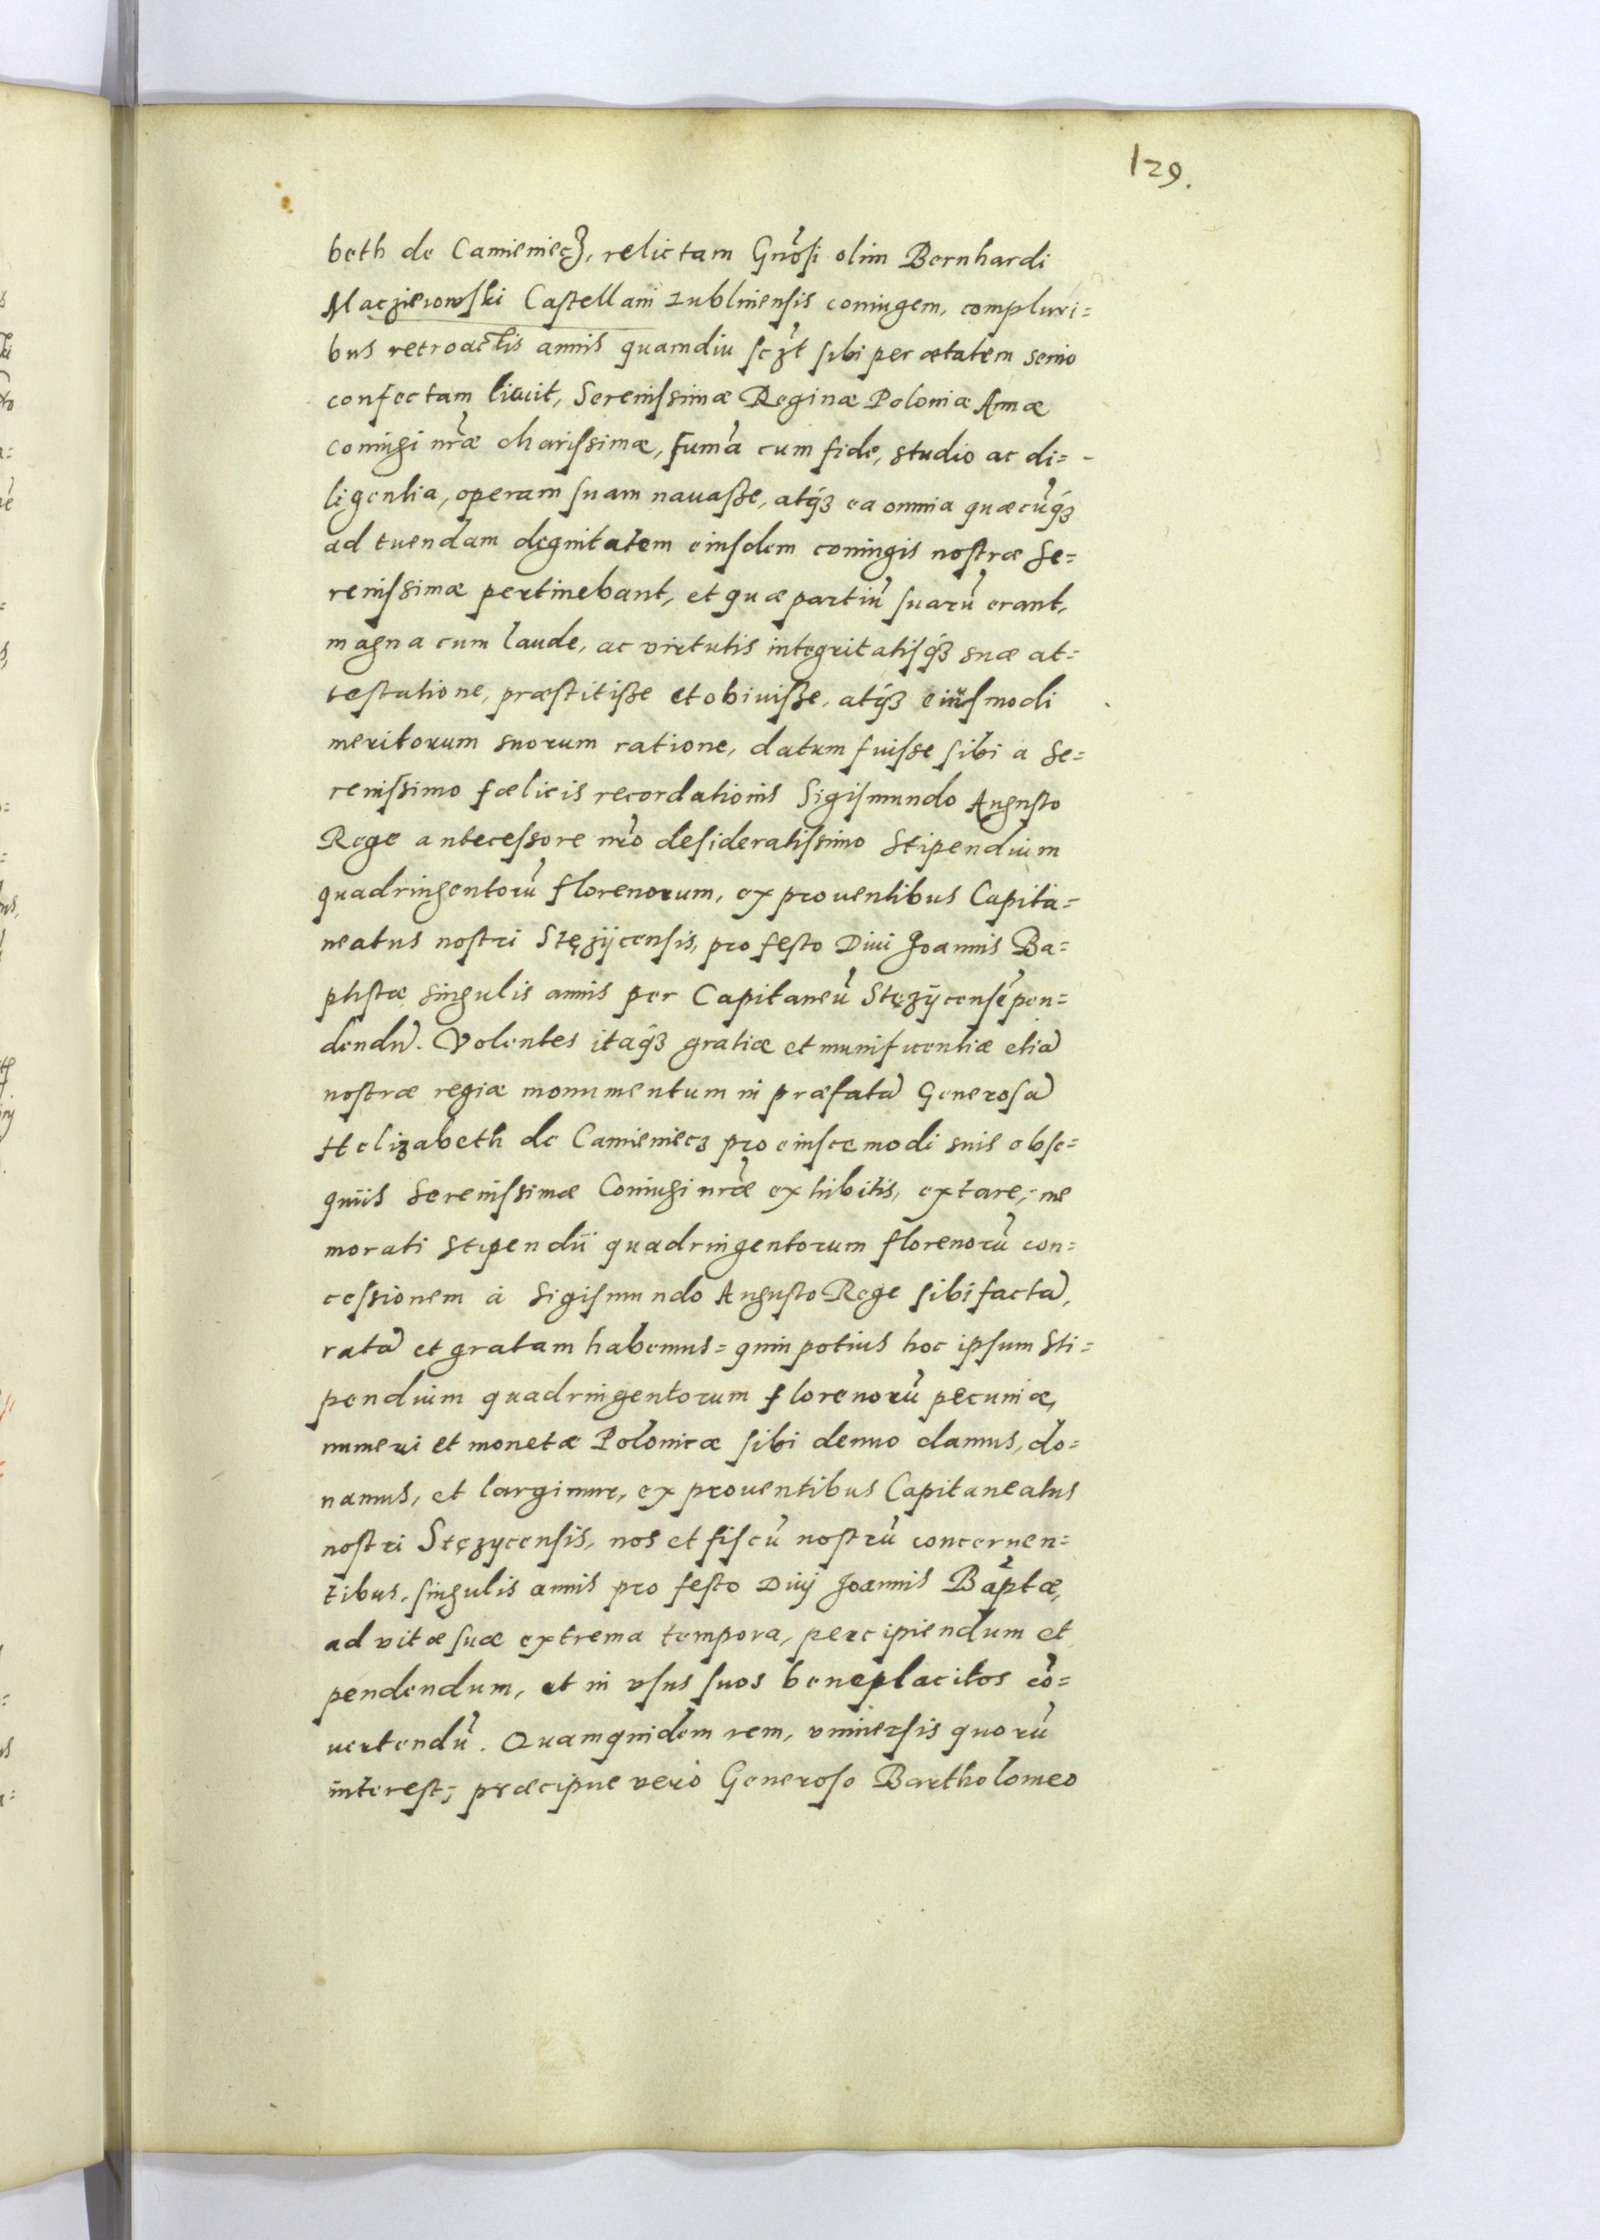 129.
beth de Camieniecz, relictam Gnõsi olim Bernhardi
Maczieiowski Castellani Lublinensis coniugem, compluri=
bus retroactis annis quamdiu sczt sibi per ætatem senio
confectam licuit, Serenissimæ Reginæ Poloniæ Annæ
coniugi nr̃æ charissimæ, sum̃a cum fide, studio ac di=
ligentia, operam suam nauasse, atq́3 ea omnia quæcũq́3
ad tuendam degnitatem eiusdem coniugis nostræ Se=
renissimæ pertinebant, et quæ partiũ suarũ erant,
magna cum laude, ac virtutis integritatisq́3 suæ at=
testatione, præstitisse et obiuisse, atq́3 eiusmodi
meritorum suorum ratione, datum fuisse sibi a Se=
renissimo fœlicis recordationis Sigismundo Augusto
Rege antecessore nr̃o desideratissimo Stipendium
quadringentorũ florenorum, ex prouentibus Capita=
neatus nostri Stęzijcensis, pro festo Diui Joannis Ba=
ptistæ singulis annis per Capitaneũ Stęzÿcensẽ pen=
dendũ. Volentes itaq́3 gratiæ et munificentiæ etiã
nostræ regiæ monumentum in præfatã Generosã
Helizabeth de Camieniecz pro eiuscemodi suis obse=
quiis Serenissimæ Coniugi nr̃æ exhibitis, extare, me
morati stipendii quadringentorum florenorũ con=
cessionem à Sigismundo Augusto Rege sibi factã,
ratã et gratam habemus= quin potius hoc ipsum Sti=
pendium quadringentorum florenorũ pecuniæ,
numeri et monetæ Polonicæ sibi denuo damus, do=
namus, et largimur, ex prouentibus Capitaneatus
nostri Stęzycensis, nos et fiscũ nostrũ concernen=
tibus, singulis annis pro festo Diuj Joannis Bap̃tæ,
ad vitæ suæ extrema tempora, percipiendum et
pendendum, et in vsus suos beneplacitos cõ=
uertendũ. Quamquidem rem, vniuersis quorũ
interest, præcipue vero Generoso Bartholomeo